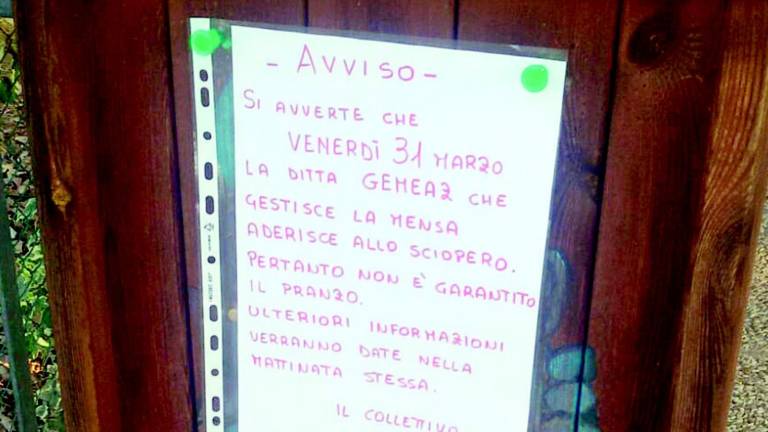 - AVVISO -
SI AVVERTE CHE
VENERDÌ 31 MARZO
LA DITTA GEMEAZ CHE
GESTISCE LA MENSA
ADERISCE ALLO SCIOPERO.
PERTANTO NON È GARANTITO
IL PRANZO.
ULTERIORI INFORMAZIONI
VERRANNO DATE NELLA
MATTINATA STESSA.
IL COLLETTIVO